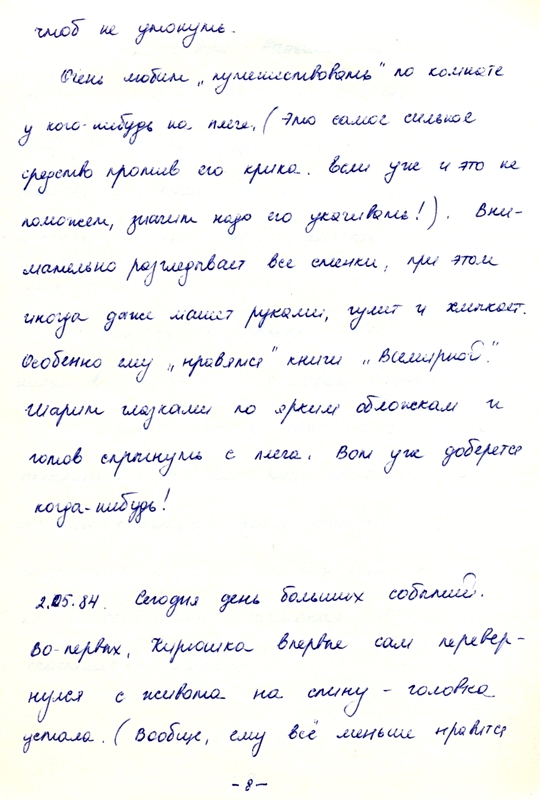 чтоб не утонуть.
Очень любит „путешествовать" по комнате
у кого-нибудь на плече. (Это самое сильное
средство против его крика. Если уже и это не
поможет, значит надо его укачивать!). Вни-
мательно разглядывает все стенки, при этом
иногда даже машет руками, гулит и хмыкает.
Особенно ему „нравятся" книги „Всемирной".
Шарит глазками по ярким обложкам и
готов спрыгнуть с плеча. Вот уже доберется
когда-нибудь!
2.05.84. Сегодня день больших событий.
Во-первых, Кирюшка впервые сам перевер-
нулся с живота на спину – головка
устала. (Вообще, ему всё меньше нравится
- 8 -